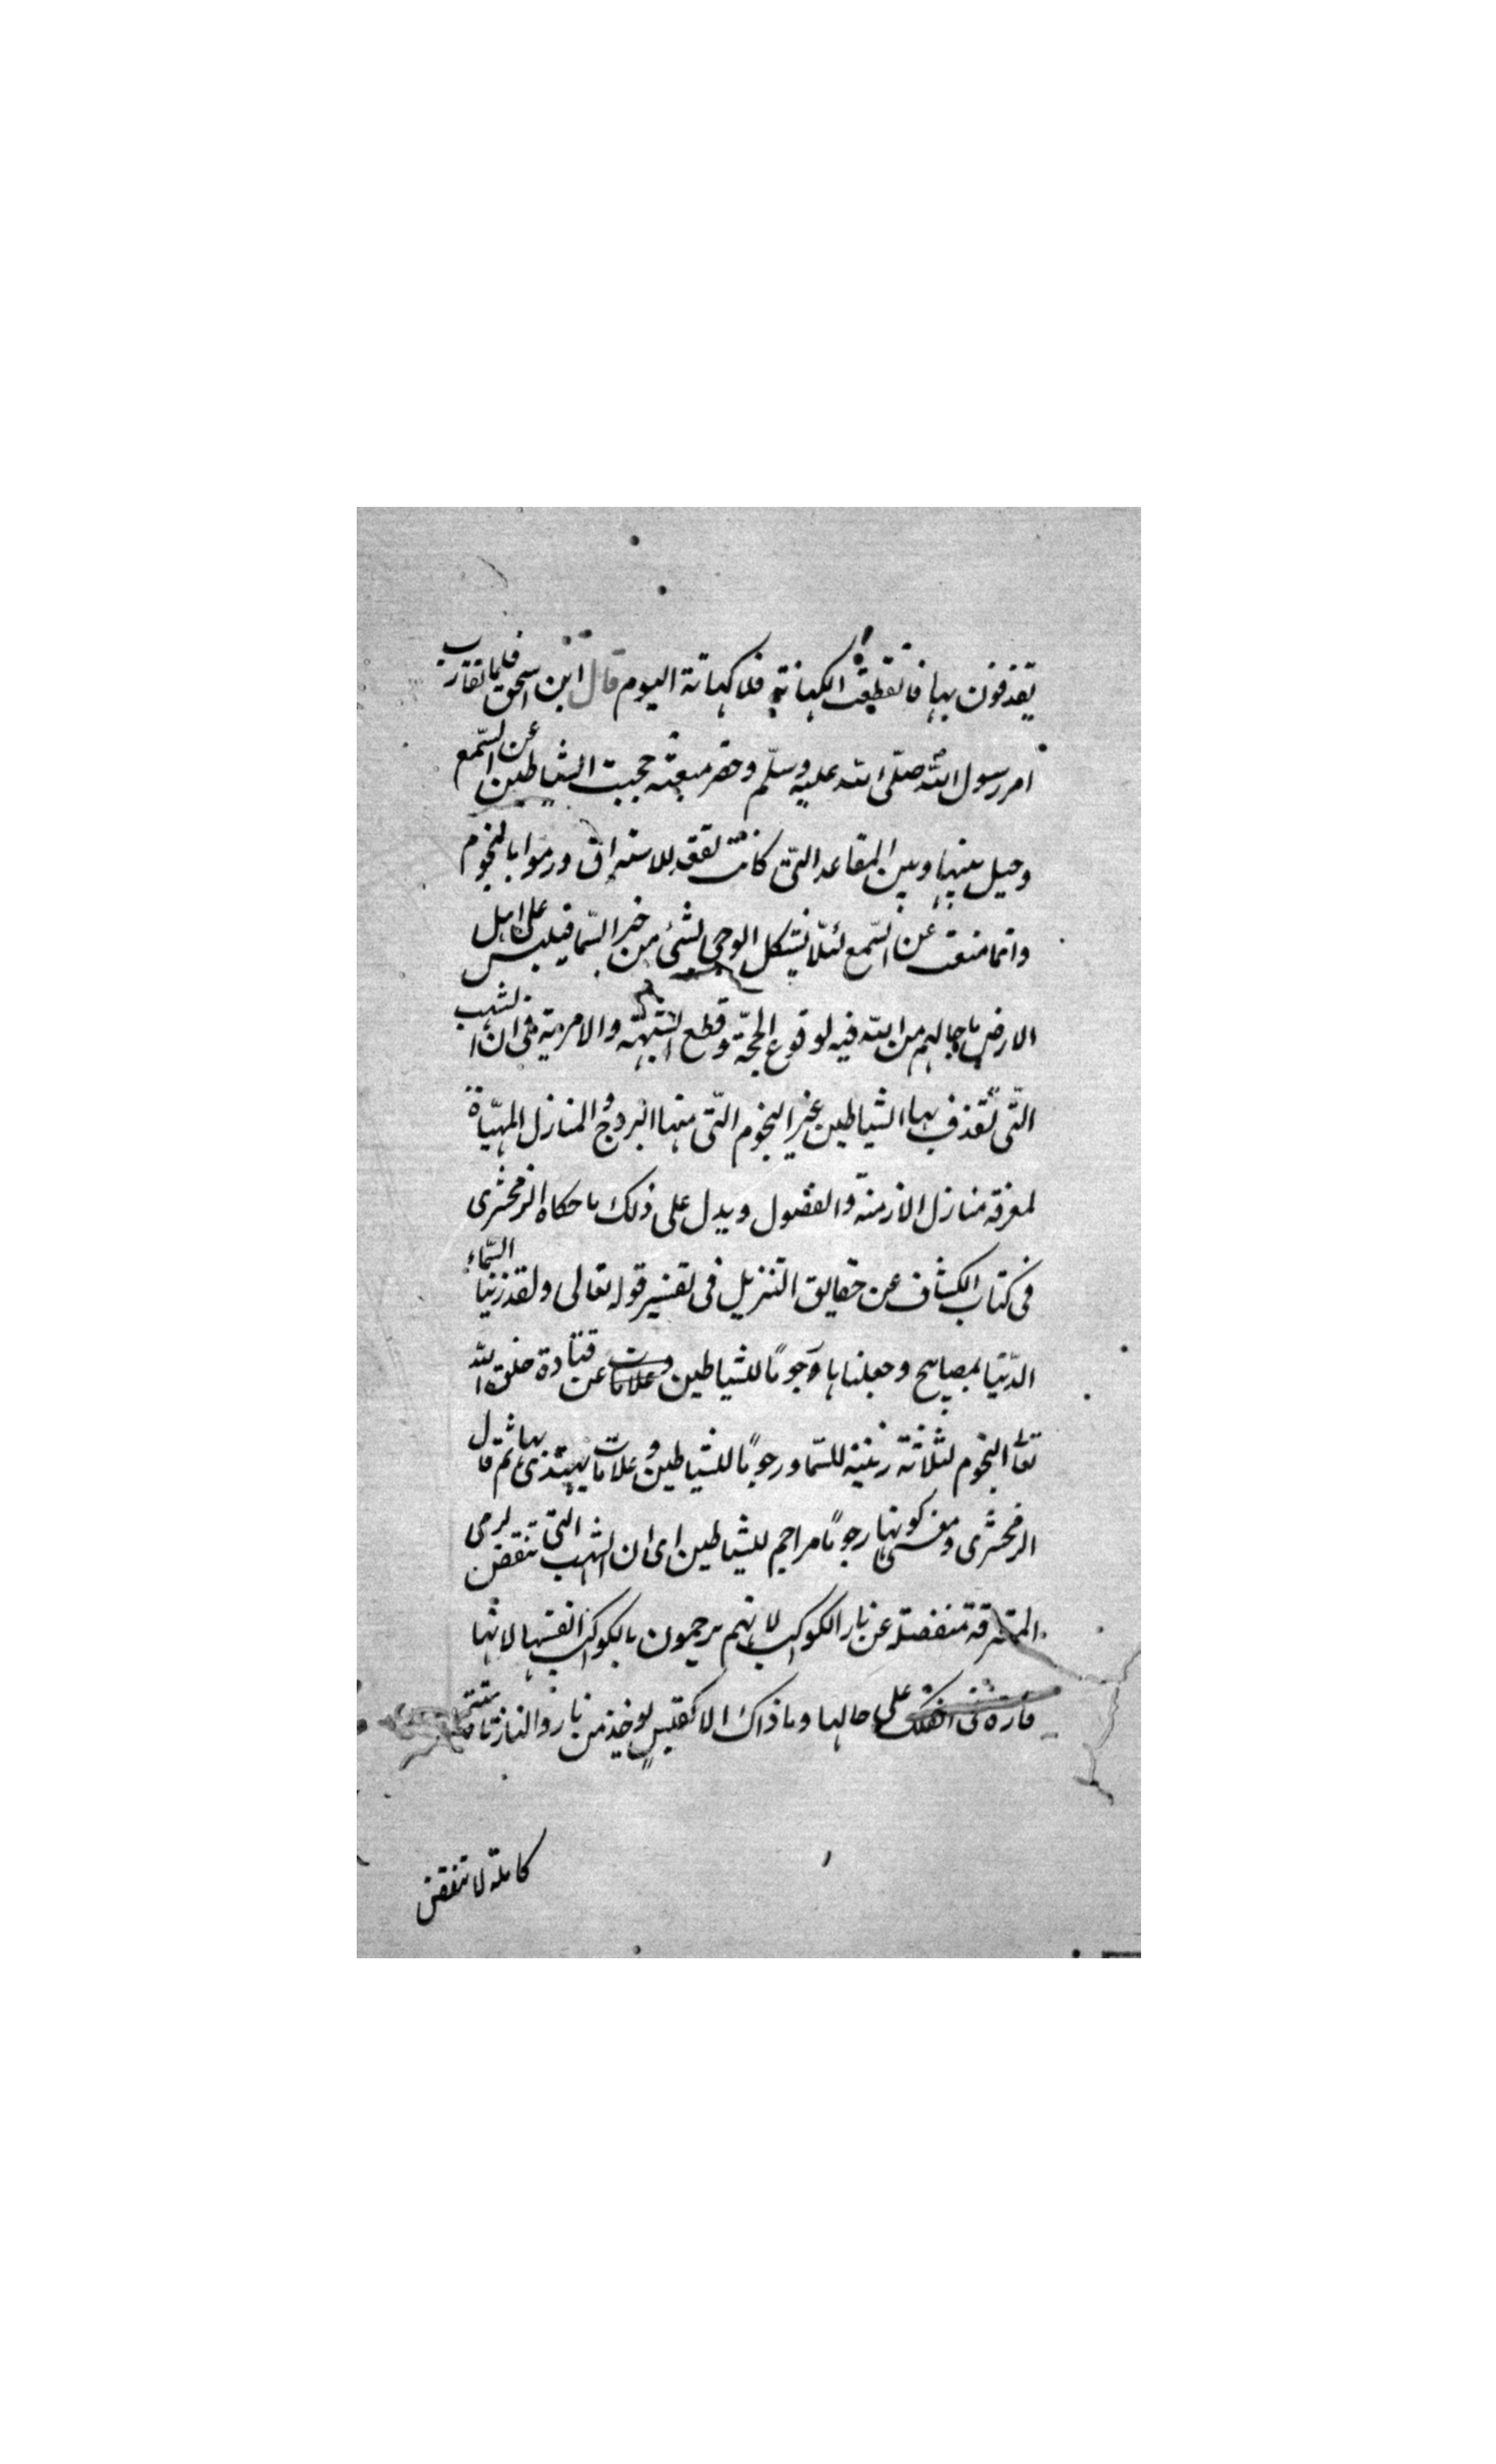 يقذفون بها فانقطعت الكهانة فلا كهانة اليوم قال ابن اسحق فلما تقارب
امر رسول الله صلّى الله عليه وسلّم وحضر مبعثه حجبت الشياطين عن السّمع
وحيل بينها وبين المقاعد التى كانت تقعد للاستراق ورموا بالنجوم
وانما منعت عن السّمع لئلّا يشكل الوحى بشئ من خبر السّما فيلبس على اهل
الارض ما جالهم من الله فيه لوقوع الحجّة وقطع الشبهة والامرية فى ان الشهب
التّى تقذف بها الشياطين غير النجوم التّى منها البروج والمنازل المهيّاة
لمعرفة منازل الازمنة والفصول ويدل على ذلك ما حكاه الزمخشرى
فى كتاب الكشاف عن حقايق التنزيل فى تفسير قوله تعالى ولقد زينا السّماء
الدّنيا بمصابيح وجعلناها رجومًا للشياطين وعلامات عن قتادة خلق الله
تعالى النجوم لثلاثة زينة للسّما ورجومًا للشياطين وعلامات يهتدى بها ثم قال
الزمخشرى ومعنى كونها رجومًا مراجم للشياطين اى ان الشهب التى تنقض لرمى
المسترقة منفصلة عن نار الكواكب لا انهم يرجمون بالكواكب انفسها لانها
قارة فى الفلك على حالها وما ذاك الا كقبس يوخذ من نار والنار ثابتة
كاملة لا تنقض